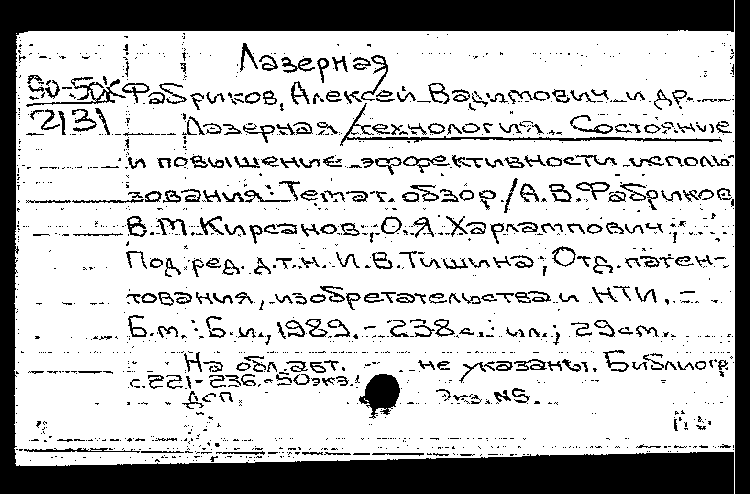 Лазерная
90-50Ж Фабриков, Алексей Вадимович и др.
2131 Лазерная технология. Состояние
и повышение эффективности исполь-
зования: Темат. обзор / А.В. Фабриков,
В.М. Кирсанов, О.Я Харлампович;
Под ред. д.т.н. И.В. Тишина; Отд. патен-
тования, изобретательства и НТИ. –
Б.м.: Б.и., 1989. – 238с.: ил.; 29см.
На обл. авт. не указаны. Библиогр
с. 221-236. – 50экз.
ДСП. Экз. №